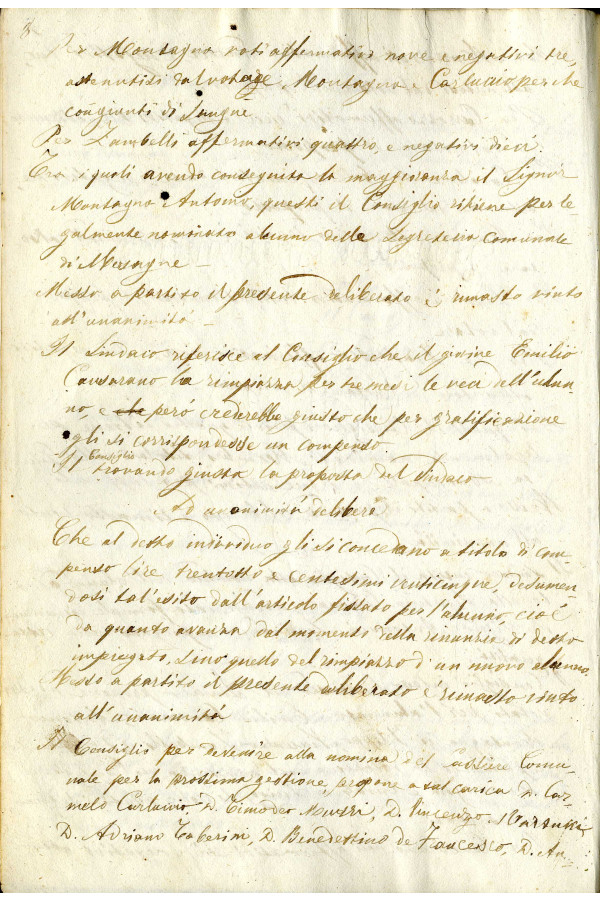 8
Per Montagna voti affermativi nove e negativi tre,
astenutisi dal votare Montagna e Carluccio perche
congiunti di sangue
Per Zambelli affermativi quattro, e negativi dieci.
Tra i quali avendo conseguita la maggioranza il Signor
Montagna Antonio, questi il Consiglio ritiene per le-
galmente nominato alunno della Segreteria Comunale
di Mesagne —
Messo a partito il presente deliberato è rimasto vinto
all'unanimità —
Il Sindaco riferisce al Consiglio che il giovine Emilio
Cavaliere ha rimpiazzato per tre mesi le veci dell'alun-
no, e che però crederebbe giusto che per gratificazione
gli si corrispondesse un compenso.
Il Consiglio trovando giusta la proposta del Sindaco
Ad unanimità delibera
Che al detto individuo gli si concedano a titolo di com-
penso lire trentotto e centesimi venticinque, desumen-
dosi tal'esito dall'articolo fissato per l'alunno, cioè
da quanto avanza dal momento della rinunzia di detto
impiegato, sino quello del rimpiazzo d'un nuovo alunno.
Messo a partito il presente deliberato è rimasto vinto
all'unanimità
Il Consiglio per devenire alla nomina del Cassiere Comu-
nale per la prossima gestione, propone a tal carica D. Car-
melo Carluccio, D. Timodeo D. Vincenzo
D. Adriano D. Benedettino de Francesco, D. An-